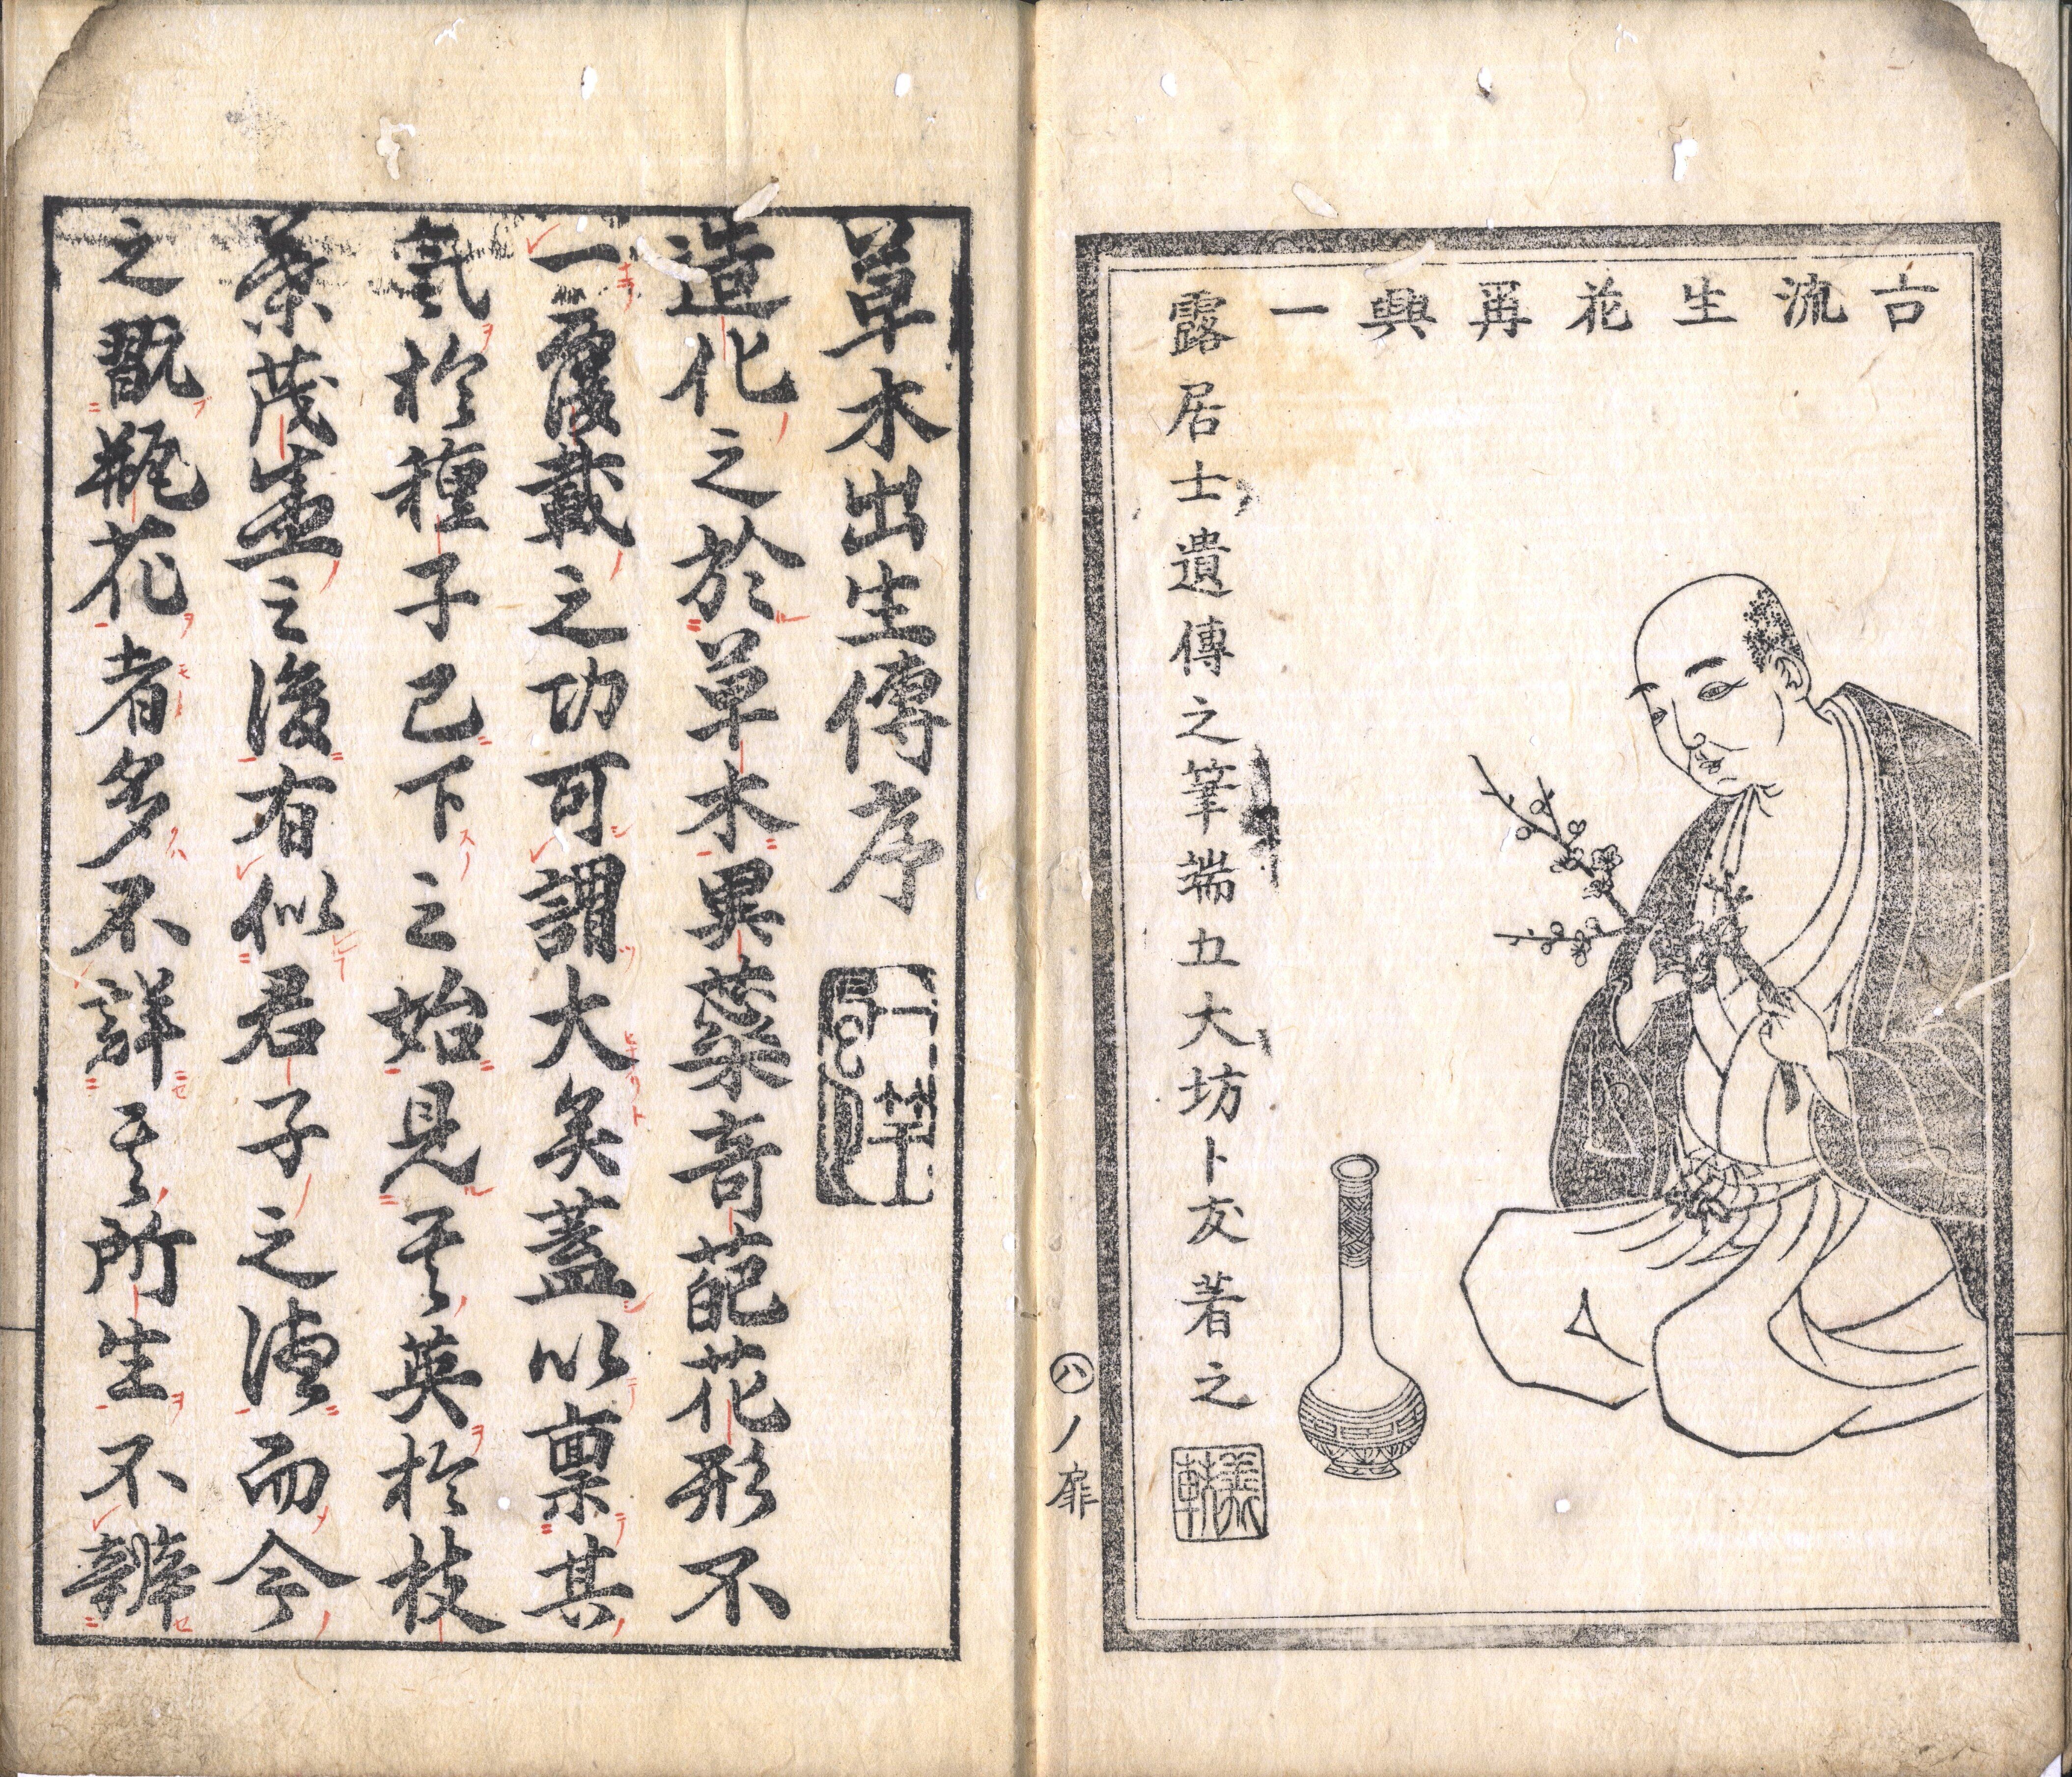 古流生花再興一
露居士遺傳之筆端五大坊卜友著之
㊇ノ扉
草木出生傳序
造化之於草木異蘂奇葩花形不
一覆載之功可謂大矣蓋以禀其
氣於種子已下之始見其英於枝
葉茂盛之後有似君子之徳而今
之翫瓶花者多不詳其所生不辨